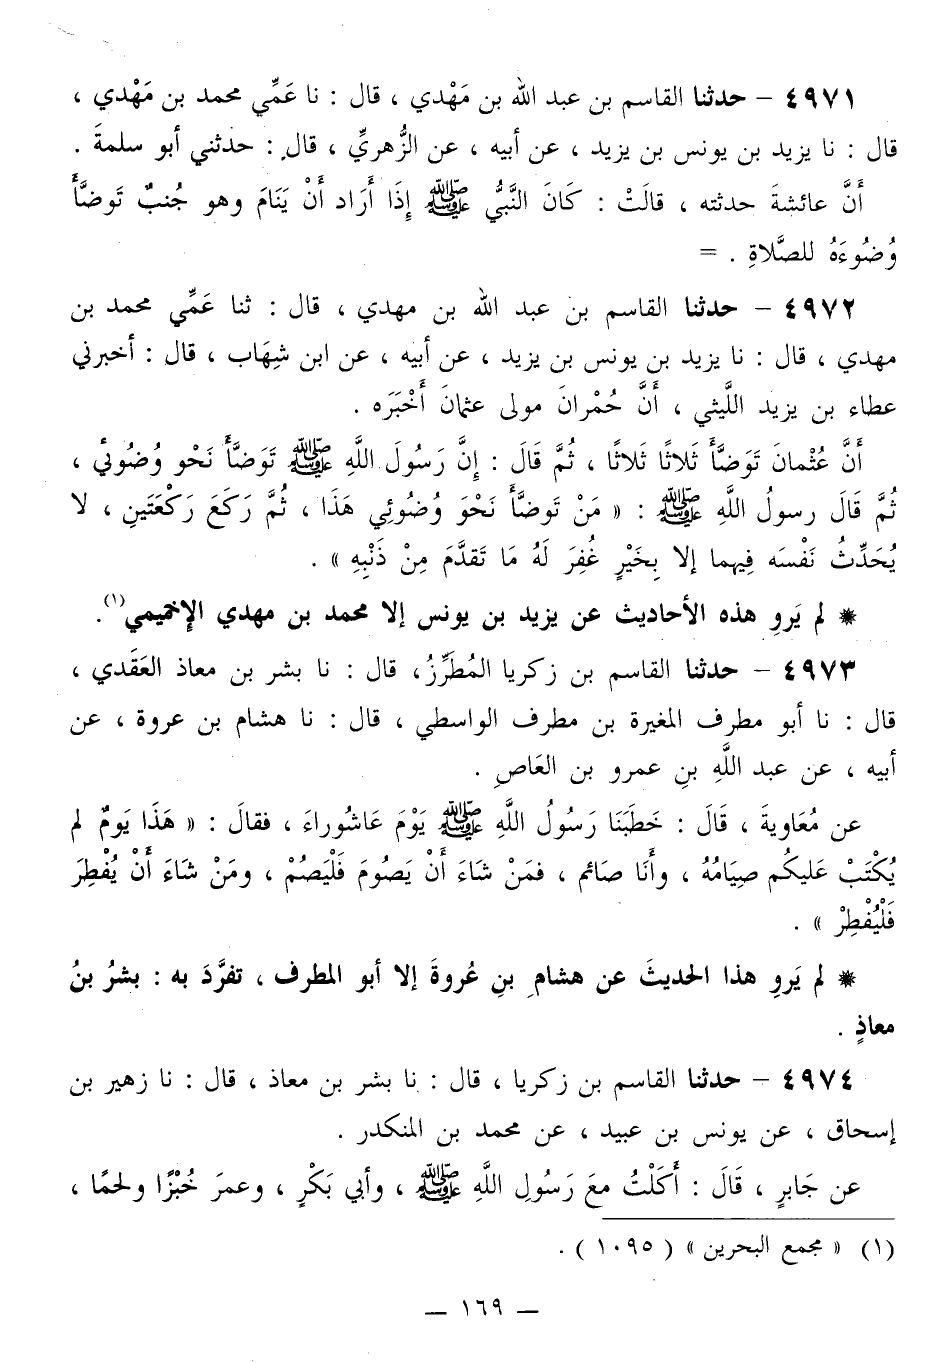 ٤٩٧١ – حدثنا القاسم بن عبد الله بن مَهْدي ، قال : نا عَمِّي محمد بن مَهْدي ،
قال : نا يزيد بن يونس بن يزيد ، عن أبيه ، عن الزُّهريِّ ، قال : حدثني أبو سلمةَ .
أَنَّ عائشةَ حدثته ، قالَتْ : كَانَ النَّبيُّ ﷺ إِذَا أَرَاد أَنْ يَنَامَ وهو جُنبٌ تَوضَّأَ
وُضُوءَهُ للصَّلاةِ . =
٤٩٧٢ – حدثنا القاسم بن عبد الله بن مهدي ، قال : ثنا عَمِّي محمد بن
مهدي ، قال : نا يزيد بن يونس بن يزيد ، عن أبيه ، عن ابن شِهَاب ، قال : أخبرني
عطاء بن يزيد اللَّيثي ، أَنَّ حُمْرانَ مولى عثمانَ أَخْبَرَه .
أَنَّ عُثْمانَ تَوَضَّأَ ثَلاثًا ثَلاثًا ، ثُمَّ قَالَ : إِنَّ رَسُولَ اللَّهِ ﷺ تَوَضَّأَ نَحْو وُضُوئي ،
ثُمَّ قَالَ رسولُ اللَّهِ ﷺ : « مَنْ تَوضَّأَ نَحْوَ وُضُوئِي هَذَا ، ثُمَّ رَكَعَ رَكْعَتَينِ ، لا
يُحَدِّثُ نَفْسَه فِيهما إلا بِخَيْرٍ غُفِرَ لَهُ مَا تَقدَّمَ مِنْ ذَنْبِهِ » .
* لم يَروِ هذه الأحاديث عن يزيد بن يونس إلا محمد بن مهدي الإخميمي(١).
٤٩٧٣ – حدثنا القاسم بن زكريا المُطَرِّزُ، قال : نا بشر بن معاذ العَقَدي ،
قال : نا أبو مطرف المغيرة بن مطرف الواسطي ، قال : نا هشام بن عروة ، عن
أبيه ، عن عبد اللَّهِ بنِ عمرو بن العَاصِ .
عن مُعَاويةَ ، قَالَ : خَطَبَنَا رَسُولُ اللَّهِ ﷺ يَوْمَ عَاشُوراءَ ، فقالَ : « هَذَا يَومٌ لم
يُكْتَبْ عَليكُم صِيَامُهُ ، وأَنَا صَائم ، فمَنْ شَاءَ أَنْ يَصُومَ فَلْيَصُمْ ، ومَنْ شَاءَ أَنْ يُفْطِرَ
فَلْيُفْطِرْ » .
* لم يَروِ هذا الحديثَ عن هشامِ بنِ عُروةَ إلا أبو المطرف ، تفرَّدَ به : بشرُ بنُ
معاذٍ .
٤٩٧٤ – حدثنا القاسم بن زكريا ، قال : نا بشر بن معاذ ، قال : نا زهير بن
إسحاق ، عن يونس بن عبيد ، عن محمد بن المنكدر .
عن جَابرٍ ، قَالَ : أَكَلْتُ معَ رَسُولِ اللَّهِ ﷺ ، وأبي بَكْرٍ ، وعمرَ خُبْزًا ولحمًا ،
(١) « مجمع البحرين » ( ١٠٩٥ ) .
– ١٦٩ –